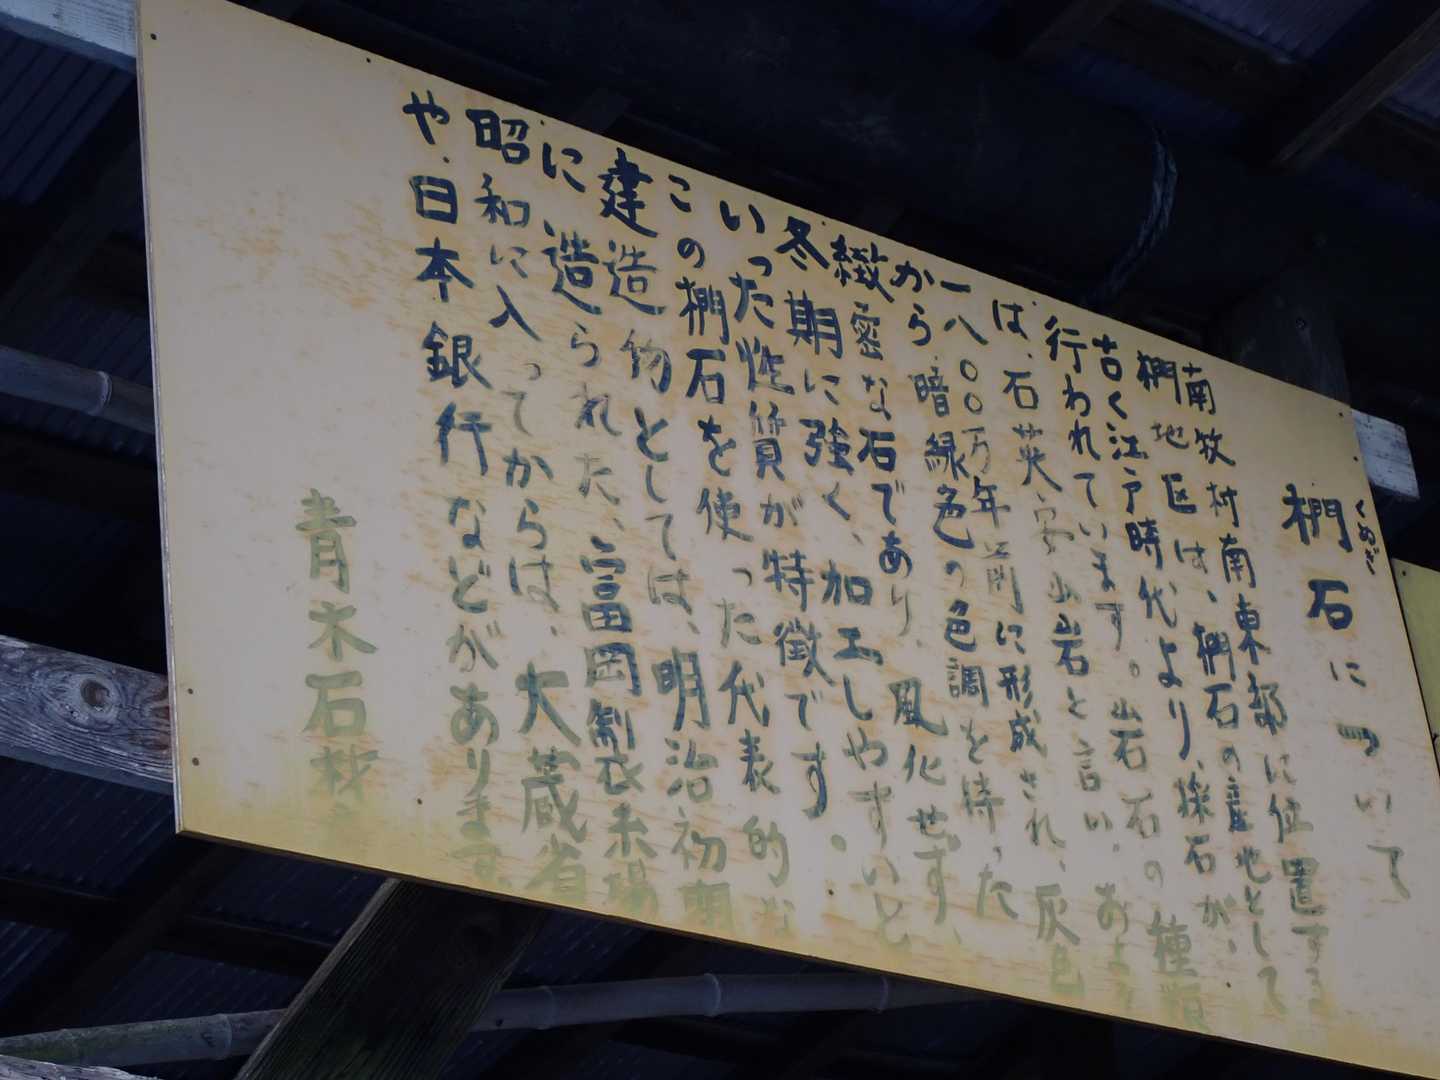 椚石について
くぬぎ
南牧村南東部に位置する
椚地区は、椚石の産地として
古く江戸時代より、採石が、
行われています。山岩石の種類
は、石英安山岩と言い、およそ
一八〇〇万年前に形成され、灰色
から暗緑色の色調を持った
緻密な石であり、風化せず、
冬期に強く、加工しやすいと
いった性質が特徴です。
この椚石を使った代表的な
建造物としては、明治初期
に造られた、富岡製糸場
昭和に入ってからは、大蔵省
や、日本銀行などがあります。
青木石材